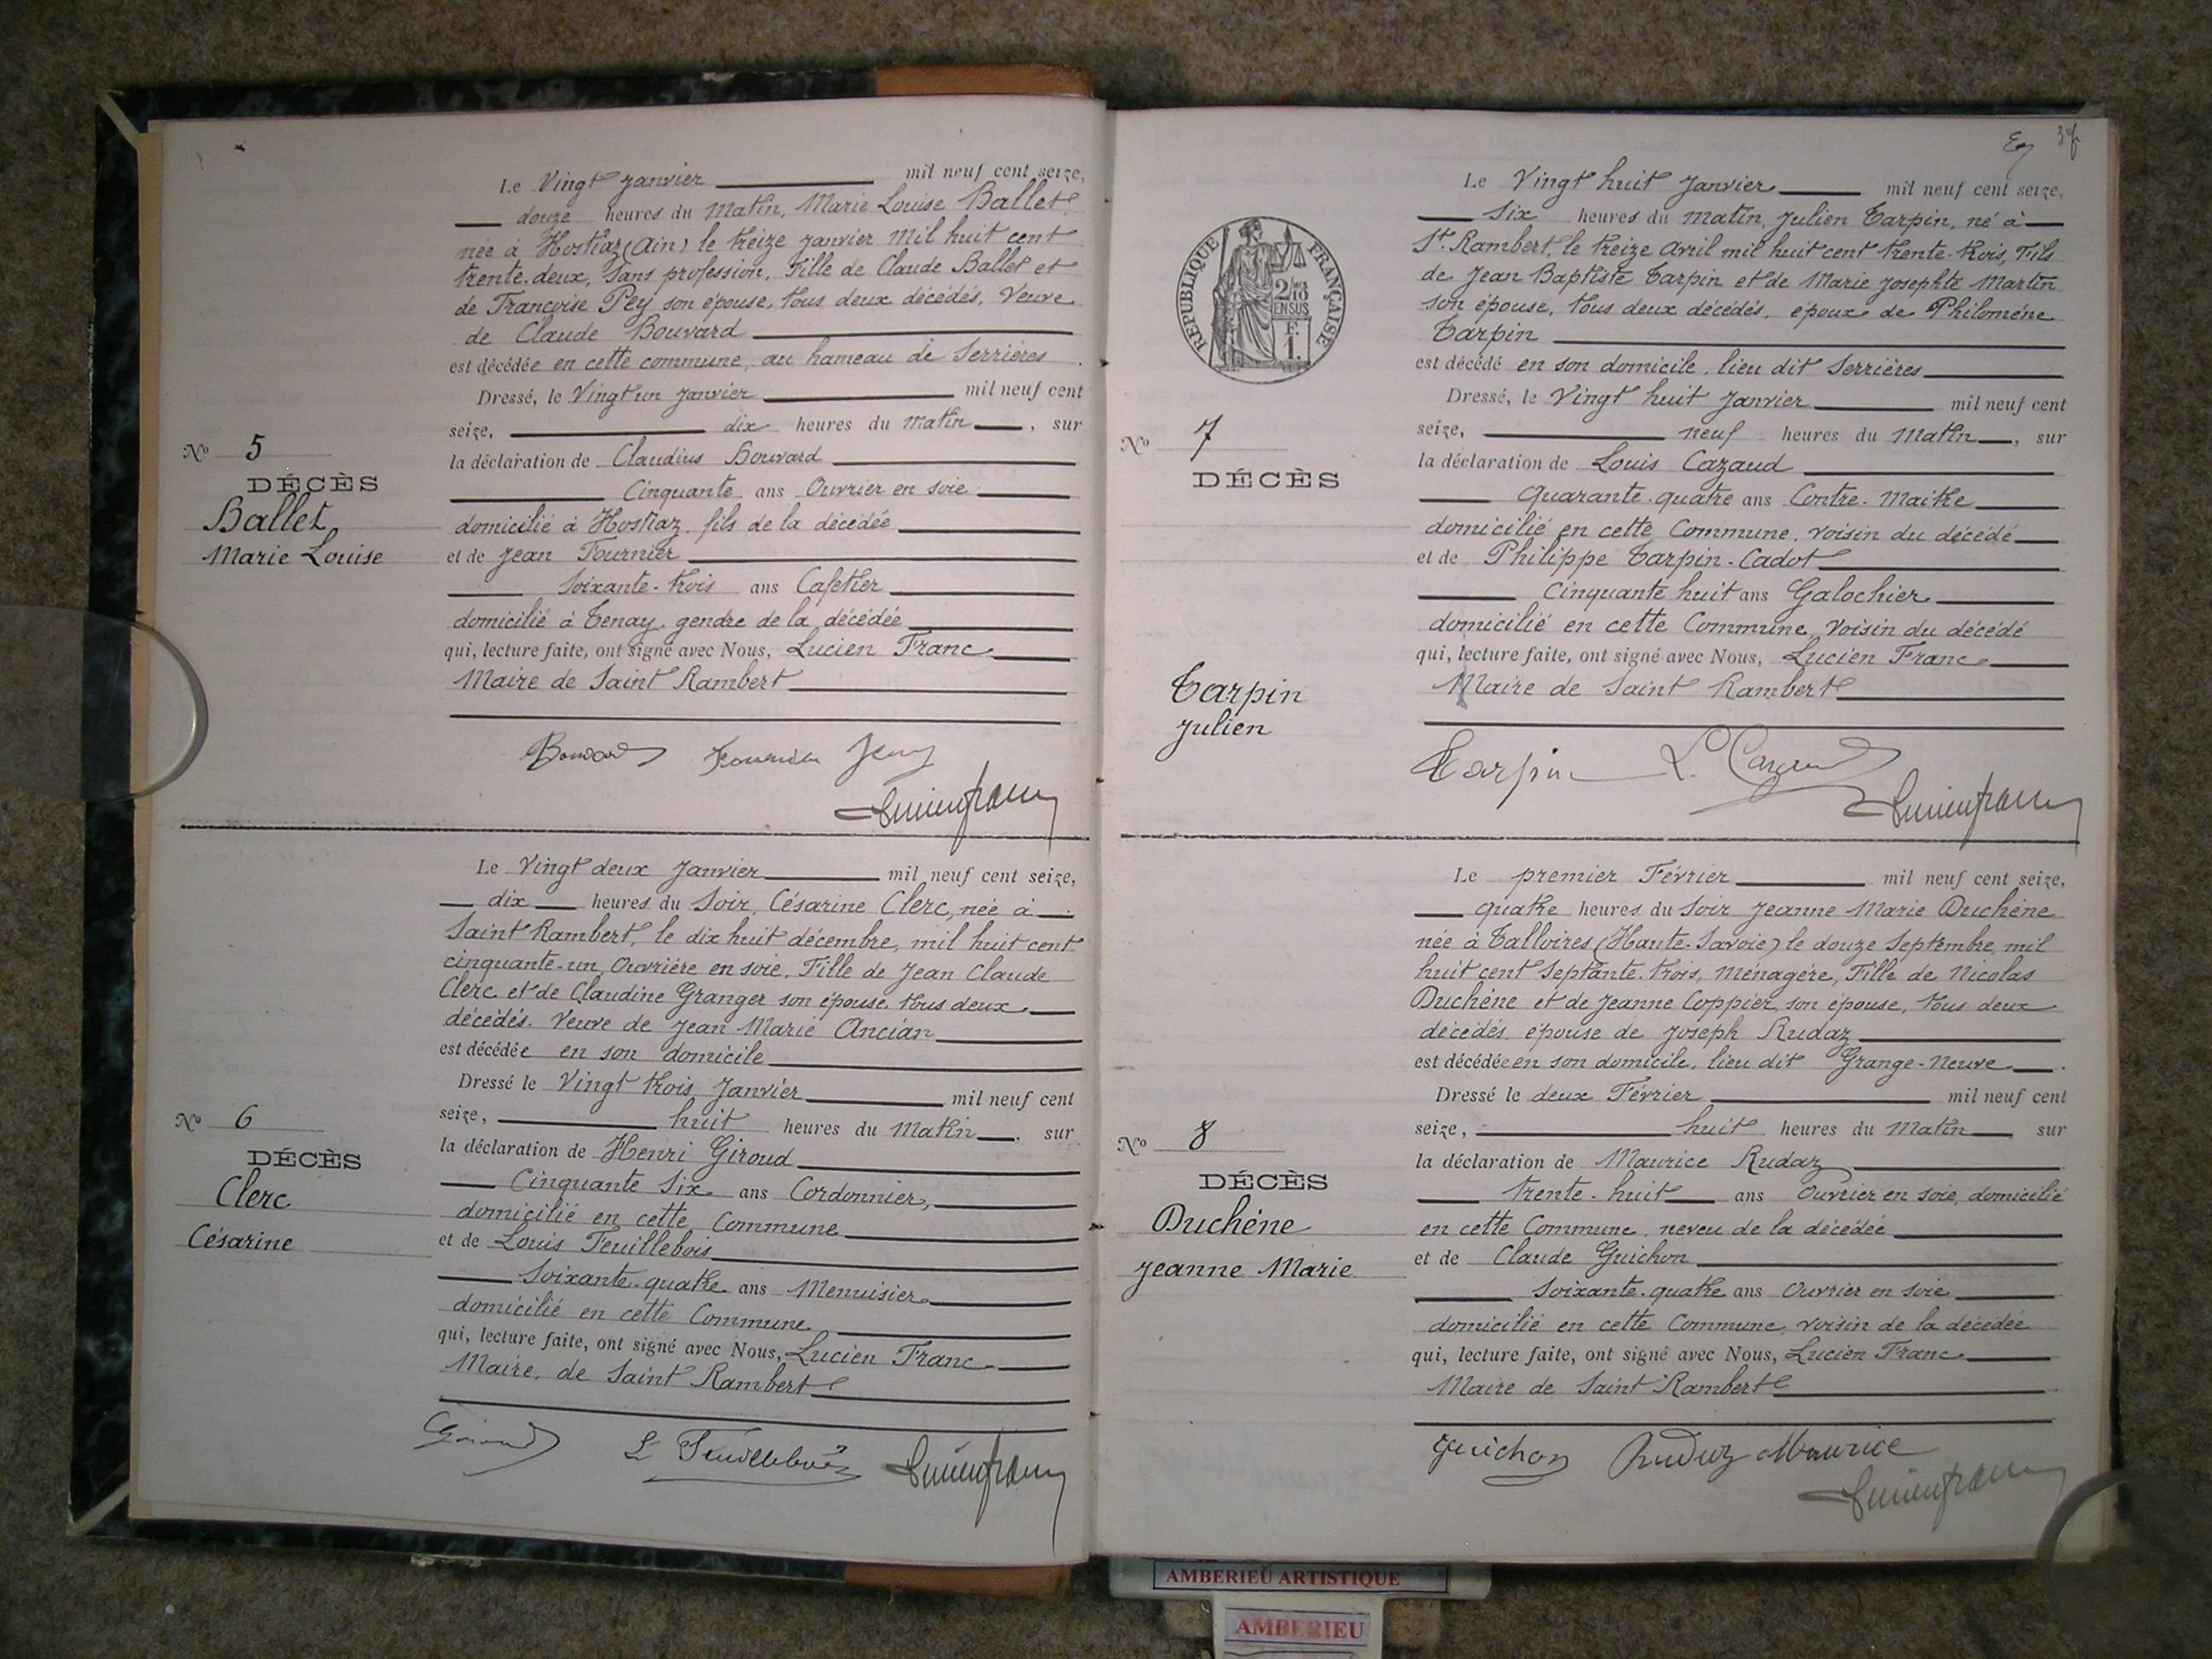 Le Vingt Janvier mil neuf cent seize,
douze heures du Matin, Marie Louise Ballet
née à Hostiaz (Ain) le treize janvier Mil huit cent
trente-deux, Sans profession, Fille de Claude Ballet et
de Françoise Pey son épouse, tous deux décédés, Veuve
de Claude Bouvard
est décédée en cette commune, au hameau de Serrières
Dressé, le Vingt un Janvier mil neuf cent
seize, dix heures du Matin, sur
la déclaration de Claudius Bouvard
Cinquante ans Ouvrier en soie
domicilié à Hostiaz, fils de la décédée
et de Jean Fournier
Soixante-trois ans Cafetier
domicilié à Tenay, gendre de la décédée
qui, lecture faite, ont signé avec Nous, Lucien Franc
Maire de Saint Rambert
No 5
DÉCÈS
Ballet
Marie Louise
Le Vingt deux Janvier mil neuf cent seize,
dix heures du Soir, Césarine Clerc, née à
Saint Rambert, le dix huit décembre, mil huit cent
cinquante-un, Ouvrière en soie, Fille de Jean Claude
Clerc et de Claudine Granger son épouse, tous deux
décédés. Veuve de Jean Marie Ancian
est décédée en son domicile
Dressé le Vingt trois Janvier mil neuf cent
seize, huit heures du Matin, sur
la déclaration de Henri Giroud
Cinquante Six ans Cordonnier,
domicilié en cette Commune
et de Louis Feuillebois
Soixante-quatre ans Menuisier
domicilié en cette Commune
qui, lecture faite, ont signé avec Nous, Lucien Franc
Maire de Saint Rambert
No 6
DÉCÈS
Clerc
Césarine
Le Vingt huit Janvier mil neuf cent seize,
Six heures du matin, Julien Tarpin, né à
St. Rambert, le treize Avril mil huit cent trente-trois, Fils
de Jean Baptiste Tarpin et de Marie Josephte Martin
son épouse, tous deux décédés, époux de Philomène
Tarpin
est décédé en son domicile, lieu dit Serrières
Dressé, le Vingt huit Janvier mil neuf cent
seize, neuf heures du Matin, sur
la déclaration de Louis Cazaud
Quarante-quatre ans Contre-Maitre
domicilié en cette Commune, voisin du décédé
et de Philippe Tarpin-Cadot
Cinquante huit ans Galochier
domicilié en cette Commune, Voisin du décédé
qui, lecture faite, ont signé avec Nous, Lucien Franc
Maire de Saint Rambert
Tarpin
RÉPUBLIQUE FRANÇAISE
2/10
EN SUS
F.
1.
No 7
DÉCÈS
Tarpin
Julien
Le premier Février mil neuf cent seize,
quatre heures du Soir Jeanne Marie Duchêne
née à Talloires (Haute-Savoie) le douze Septembre, mil
huit cent Septante-trois, Ménagère, Fille de Nicolas
Duchêne et de Jeanne Coppier, son épouse, tous deux
décédés, épouse de Joseph Rudaz
est décédée en son domicile, lieu dit Grange-Neuve
Dressé le deux Février mil neuf cent
seize, huit heures du Matin sur
la déclaration de Maurice Rudaz
trente-huit ans Ouvrier en soie, domicilié
en cette Commune, neveu de la décédée
et de Claude Guichon
Soixante-quatre ans Ouvrier en soie
domicilié en cette Commune, voisin de la décédée
qui, lecture faite, ont signé avec Nous, Lucien Franc
Maire de Saint Rambert
Guichon Rudaz Maurice
No 8
DÉCÈS
Duchêne
Jeanne Marie
AMBERIEU ARTISTIQUE
AMBERIEU